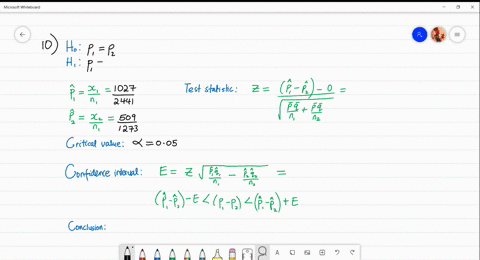 Microsoft Whiteboard
10) H₀: p₁ = p₂
H₁: p₁ –
p̂₁ = x₁/n₁ = 1027/2441
Test statistic: Z = ((p̂₁ - p̂₂) - 0)/√(p̄q̄/n₁ + p̄q̄/n₂) =
p̂₂ = x₂/n₂ = 509/1273
Critical value: α = 0.05
Confidence interval: E = Z √(p̂₁q̂₁/n₁ - p̂₂q̂₂/n₂) =
(p̂₁-p̂₂)-E < (p₁-p₂) < (p̂₁-p̂₂)+E
Conclusion: